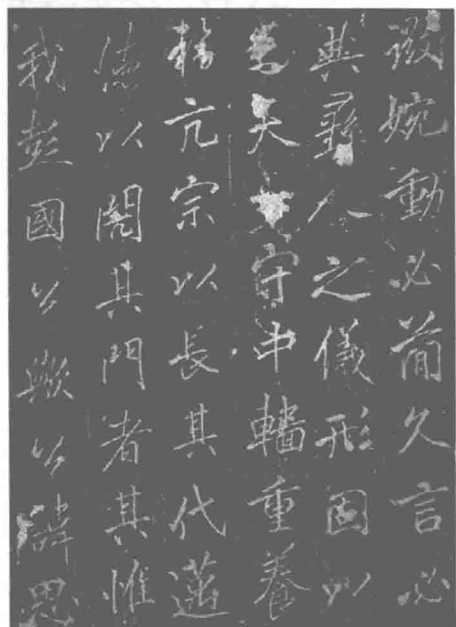 微婉動必簡久言必
典彝人之儀形固以
矣守中輜重養
亢宗以長其代邁
德以閎其門者其惟
我彭國公歟公諱思